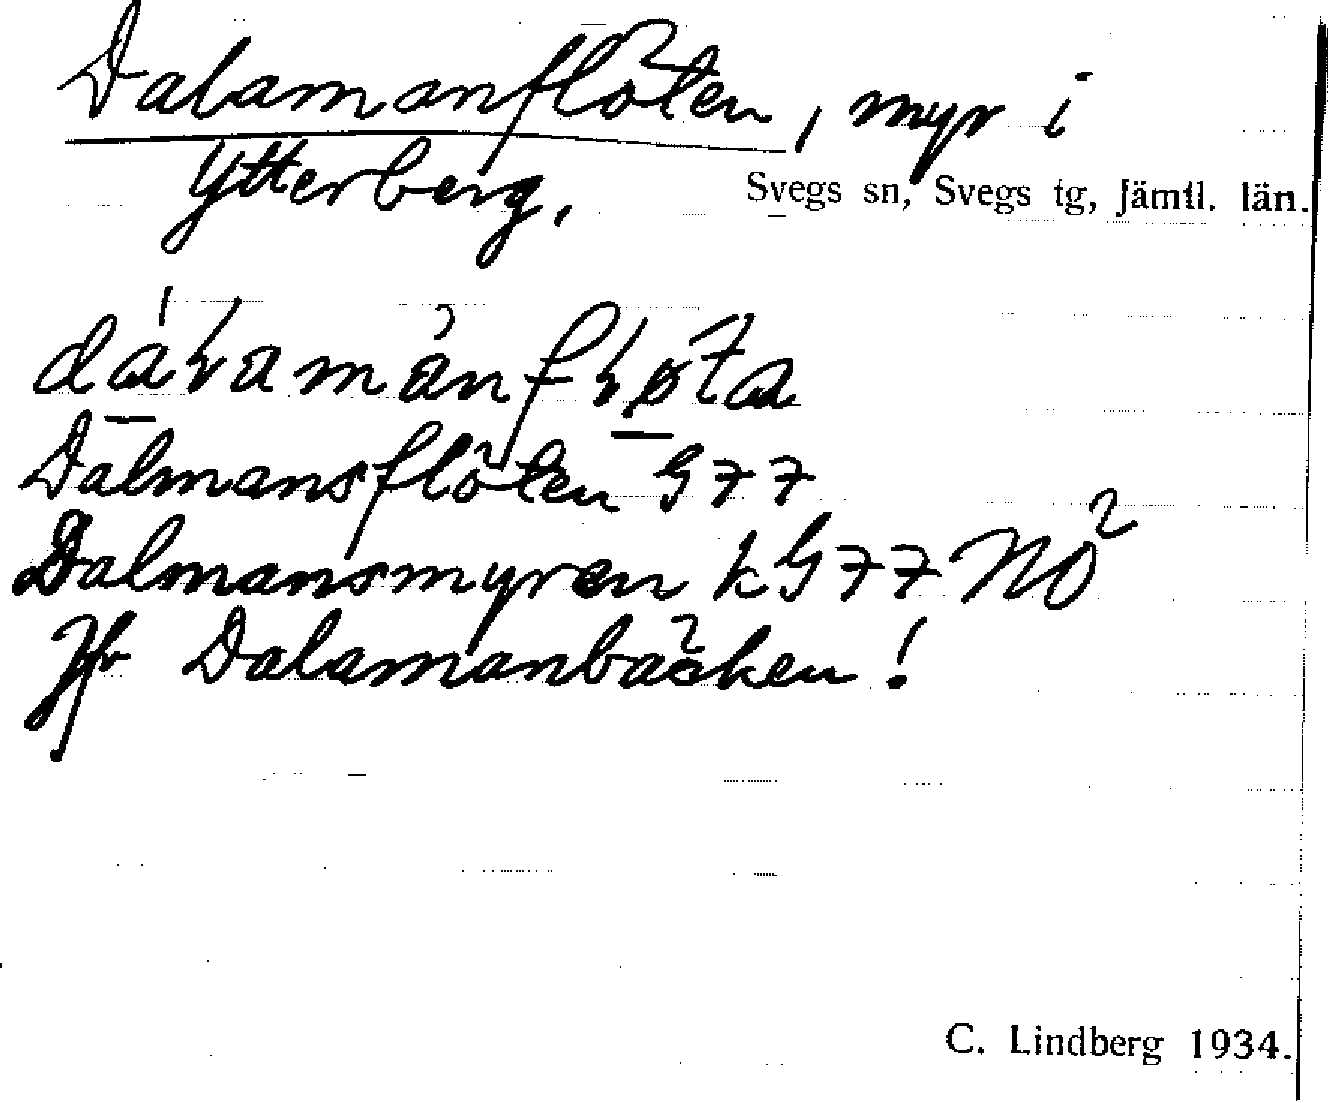 Dalamanflöten, myr i
Ytterberg,
Svegs sn, Svegs tg, Jämtl. län.
Dalmansflöten G 77
Dalmansmyren k G 77 NO
Jfr Dalamanbäcken!
C. Lindberg 1934.